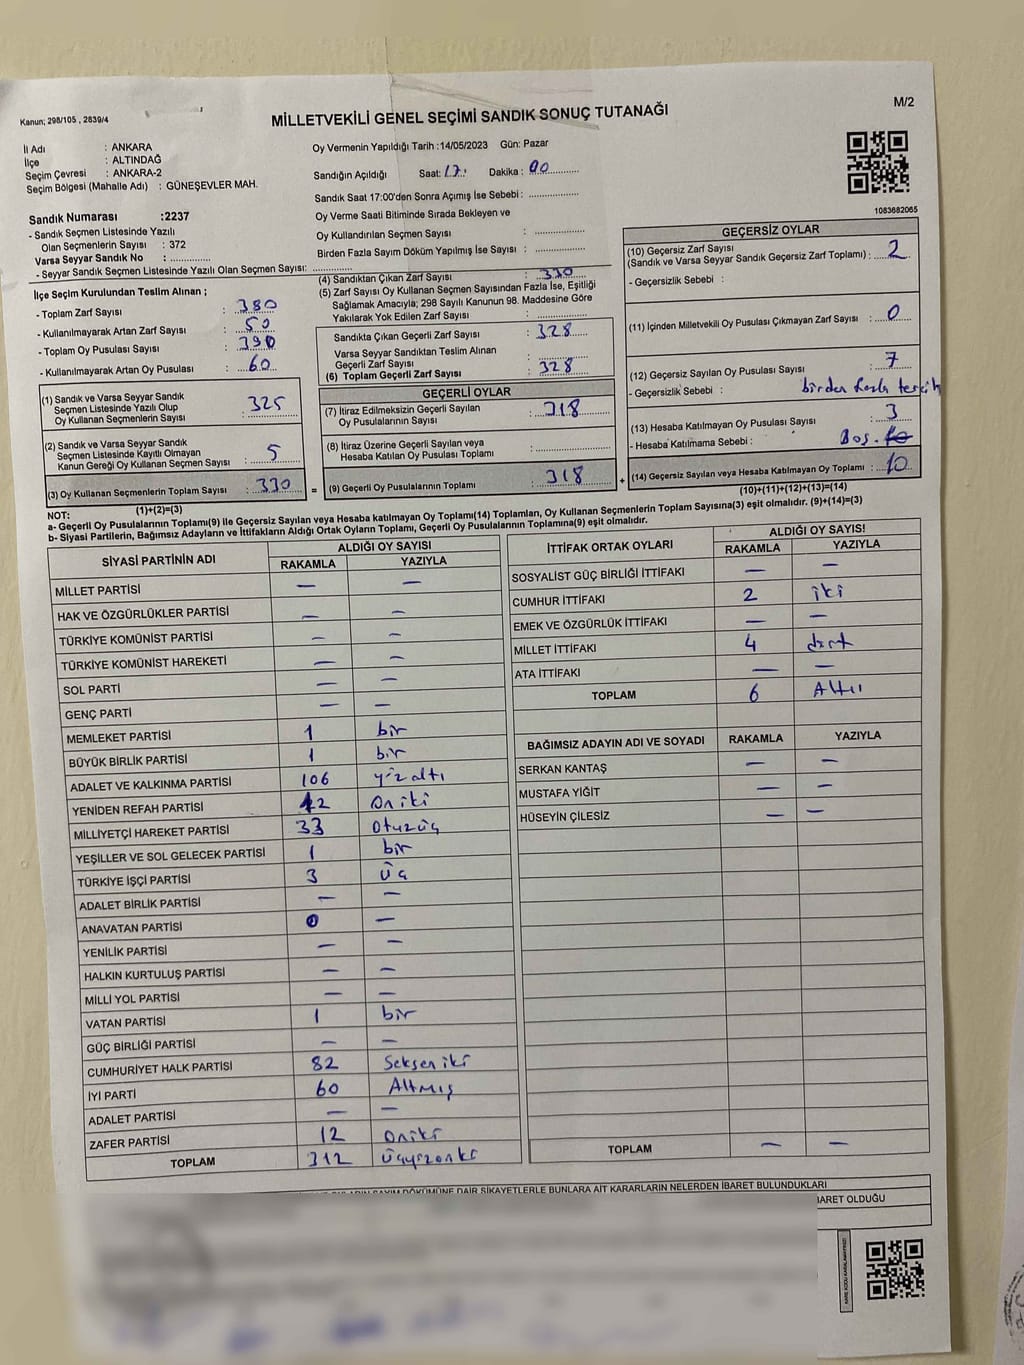 Kanun; 298/105 , 2839/4
MİLLETVEKİLİ GENEL SEÇİMİ SANDIK SONUÇ TUTANAĞI
M/2
İl Adı : ANKARA
İlçe : ALTINDAĞ
Seçim Çevresi : ANKARA-2
Seçim Bölgesi (Mahalle Adı) : GÜNEŞEVLER MAH.
Sandık Numarası :2237
- Sandık Seçmen Listesinde Yazılı
Olan Seçmenlerin Sayısı : 372
Varsa Seyyar Sandık No :
- Seyyar Sandık Seçmen Listesinde Yazılı Olan Seçmen Sayısı:
Oy Vermenin Yapıldığı Tarih :14/05/2023 Gün: Pazar
Sandığın Açıldığı Saat: 17 Dakika : 00
Sandık Saat 17:00'den Sonra Açımış İse Sebebi :
Oy Verme Saati Bitiminde Sırada Bekleyen ve
Oy Kullandırılan Seçmen Sayısı :
Birden Fazla Sayım Döküm Yapılmış İse Sayısı :
1083682065
İlçe Seçim Kurulundan Teslim Alınan ;
- Toplam Zarf Sayısı : 380
- Kullanılmayarak Artan Zarf Sayısı : 50
- Toplam Oy Pusulası Sayısı : 390
- Kullanılmayarak Artan Oy Pusulası : 60
(1) Sandık ve Varsa Seyyar Sandık
Seçmen Listesinde Yazılı Olup
Oy Kullanan Seçmenlerin Sayısı : 325
(2) Sandık ve Varsa Seyyar Sandık
Seçmen Listesinde Kayıtlı Olmayan
Kanun Gereği Oy Kullanan Seçmen Sayısı : 5
(3) Oy Kullanan Seçmenlerin Toplam Sayısı : 330
(1)+(2)=(3)
(4) Sandıktan Çıkan Zarf Sayısı : 330
(5) Zarf Sayısı Oy Kullanan Seçmen Sayısından Fazla İse, Eşitliği
Sağlamak Amacıyla; 298 Sayılı Kanunun 98. Maddesine Göre
Yakılarak Yok Edilen Zarf Sayısı :
Sandıkta Çıkan Geçerli Zarf Sayısı : 328
Varsa Seyyar Sandıktan Teslim Alınan
Geçerli Zarf Sayısı :
(6) Toplam Geçerli Zarf Sayısı : 328
GEÇERLİ OYLAR
(7) İtiraz Edilmeksizin Geçerli Sayılan
Oy Pusulalarının Sayısı : 318
(8) İtiraz Üzerine Geçerli Sayılan veya
Hesaba Katılan Oy Pusulası Toplamı :
= (9) Geçerli Oy Pusulalarının Toplamı : 318 +
GEÇERSİZ OYLAR
(10) Geçersiz Zarf Sayısı
(Sandık ve Varsa Seyyar Sandık Geçersiz Zarf Toplamı) : 2
- Geçersizlik Sebebi :
(11) İçinden Milletvekili Oy Pusulası Çıkmayan Zarf Sayısı : 0
(12) Geçersiz Sayılan Oy Pusulası Sayısı : 7
- Geçersizlik Sebebi : birden fazla tercih
(13) Hesaba Katılmayan Oy Pusulası Sayısı : 3
- Hesaba Katılmama Sebebi : Boş.
(14) Geçersiz Sayılan veya Hesaba Katılmayan Oy Toplamı : 10
(10)+(11)+(12)+(13)=(14)
NOT:
a- Geçerli Oy Pusulalarının Toplamı(9) ile Geçersiz Sayılan veya Hesaba katılmayan Oy Toplamı(14) Toplamları, Oy Kullanan Seçmenlerin Toplam Sayısına(3) eşit olmalıdır. (9)+(14)=(3)
b- Siyasi Partilerin, Bağımsız Adayların ve İttifakların Aldığı Ortak Oyların Toplamı, Geçerli Oy Pusulalarının Toplamına(9) eşit olmalıdır.
SİYASİ PARTİNİN ADI ALDIĞI OY SAYISI
RAKAMLA YAZIYLA
MİLLET PARTİSİ — —
HAK VE ÖZGÜRLÜKLER PARTİSİ — —
TÜRKİYE KOMÜNİST PARTİSİ — —
TÜRKİYE KOMÜNİST HAREKETİ — —
SOL PARTİ — —
GENÇ PARTİ — —
MEMLEKET PARTİSİ 1 bir
BÜYÜK BİRLİK PARTİSİ 1 bir
ADALET VE KALKINMA PARTİSİ 106 yüzaltı
YENİDEN REFAH PARTİSİ 12 oniki
MİLLİYETÇİ HAREKET PARTİSİ 33 otuzüç
YEŞİLLER VE SOL GELECEK PARTİSİ 1 bir
TÜRKİYE İŞÇİ PARTİSİ 3 üç
ADALET BİRLİK PARTİSİ — —
ANAVATAN PARTİSİ 0 —
YENİLİK PARTİSİ — —
HALKIN KURTULUŞ PARTİSİ — —
MİLLİ YOL PARTİSİ — —
VATAN PARTİSİ 1 bir
GÜÇ BİRLİĞİ PARTİSİ — —
CUMHURİYET HALK PARTİSİ 82 Seksen iki
İYİ PARTİ 60 Altmış
ADALET PARTİSİ — —
ZAFER PARTİSİ 12 oniki
TOPLAM 312 üçyüzoniki
İTTİFAK ORTAK OYLARI ALDIĞI OY SAYISI
RAKAMLA YAZIYLA
SOSYALİST GÜÇ BİRLİĞİ İTTİFAKI — —
CUMHUR İTTİFAKI 2 iki
EMEK VE ÖZGÜRLÜK İTTİFAKI — —
MİLLET İTTİFAKI 4 dört
ATA İTTİFAKI — —
TOPLAM 6 Altı
BAĞIMSIZ ADAYIN ADI VE SOYADI RAKAMLA YAZIYLA
SERKAN KANTAŞ — —
MUSTAFA YİĞİT — —
HÜSEYİN ÇİLESİZ — —
TOPLAM — —
SAYIM DÖKÜMÜNE DAİR ŞİKAYETLERLE BUNLARA AİT KARARLARIN NELERDEN İBARET BULUNDUKLARI
İBARET OLDUĞU